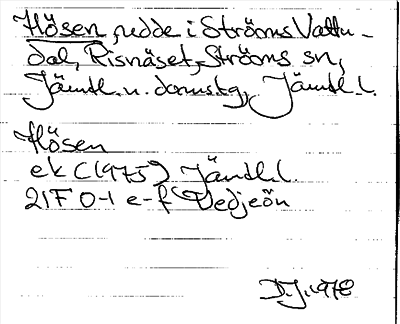 Hösen, redde i Ströms Vattu-
dal, Risnäset, Ströms sn,
Jämtl. n. domstg, Jämtl. l.
Hösen
ek (1975) Jämtl. l.
21F 0-1 e-f Vedjeön
D.J. 1978